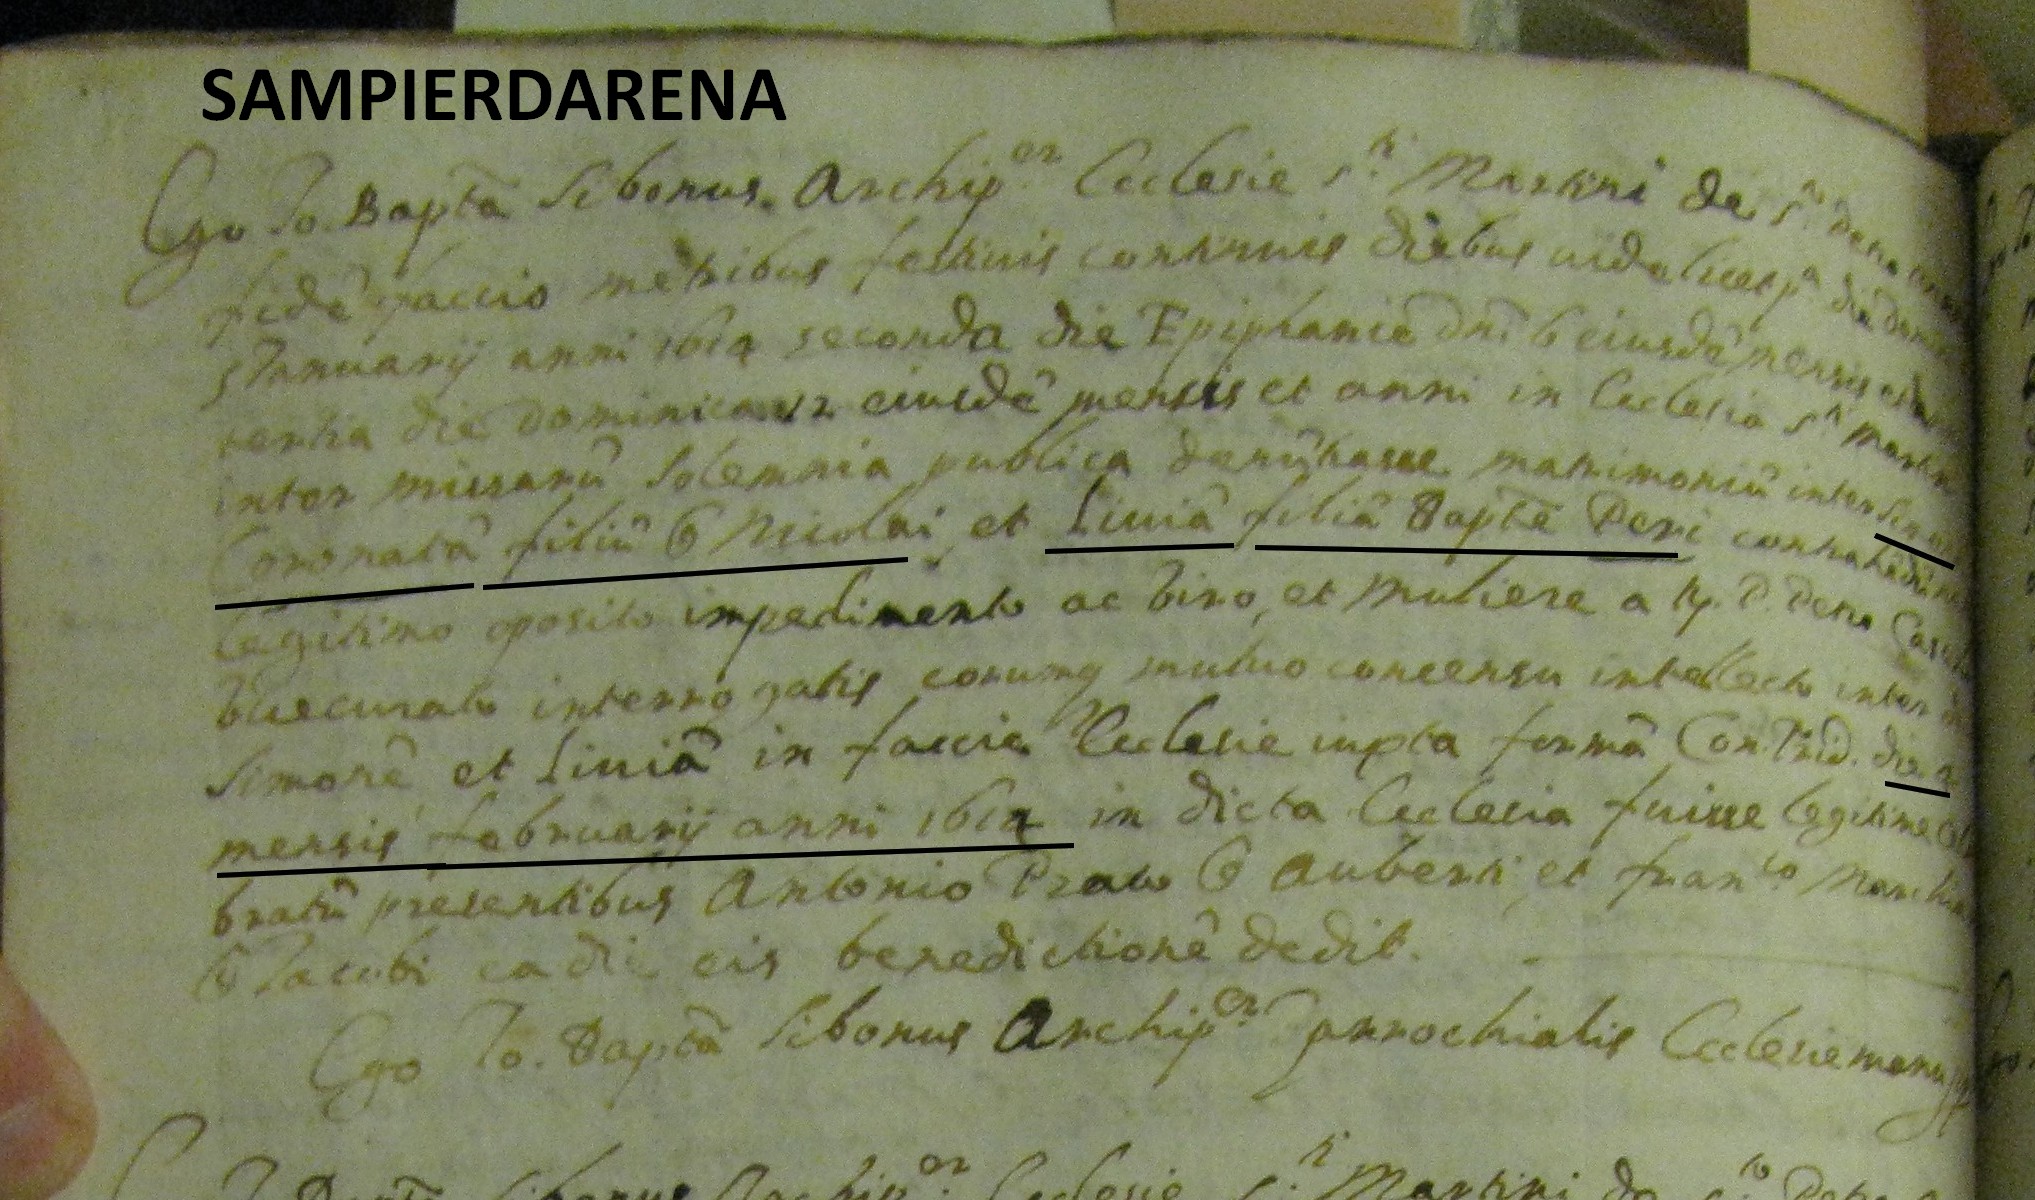 SAMPIERDARENA
Ego Jo. Baptã Sibonus Archip.er Ecclesie S.ti Martini de S.to Petro
fidẽ faccio me tribus festivis continuis diebus videlicet p.a die
5 Januarij anni 1614 seconda die Epiphanie dñi 6 eiusdẽ mensis et
tertia die dominica 12 eiusdẽ mensis et anni in Ecclesia S.ti Martini
inter missarũ solemnia publica denũtiasse matrimoniũ inter
Coronatã filiũ Q Nicolai et Liviã filiã Baptẽ Peri
legitimo oposito impedimento ac viro, et muliere a R. P. Petro
vicecurato interrogatis eorumq mutuo concensu intellecto inter
Simonẽ et Liviã in faccie Ecclesie iuxta formã Con. Trid. die
mensis februarij anni 1614 in dicta Ecclesia fuisse legitime
bratũ presentibus Antonio Prato Q Auberti et Fran.co
Q Jacobi ea die eis benedictionẽ dedit.
Ego Jo. Baptã Sibonus Archip.er parrochialis Ecclesie
Sibonus Archip.er Ecclesie S.ti Martini de S.to